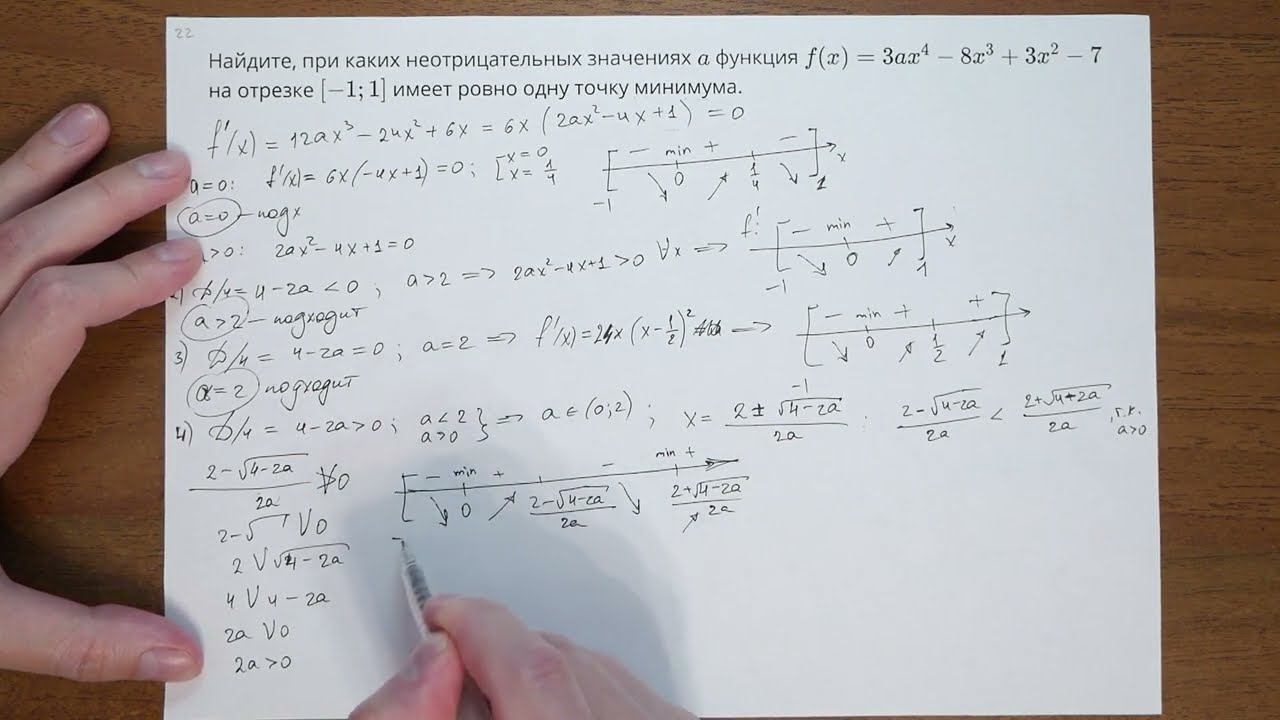 22
Найдите, при каких неотрицательных значениях a функция f(x) = 3ax⁴ − 8x³ + 3x² − 7
на отрезке [−1; 1] имеет ровно одну точку минимума.
f'(x) = 12ax³ − 24x² + 6x = 6x (2ax² − 4x + 1) = 0
a=0: f'(x) = 6x(−4x+1) = 0; [x=0 x=1/4
− min + −
-1 0 1/4 1 x
a=0 – подх
a>0: 2ax² − 4x + 1 = 0
2) D/4 = 4 − 2a < 0 ; a>2 => 2ax² − 4x + 1 > 0 ∀x =>
f': − min +
-1 0 1 x
a>2 – подходит
3) D/4 = 4 − 2a = 0 ; a=2 => f'(x) = 24x (x − 1/2)² =>
− min + +
-1 0 1/2 1
a=2 подходит
4) D/4 = 4 − 2a > 0 ; a<2 a>0 } => a ∈ (0; 2) ; x = (2 ± √(4−2a))/2a : (2 − √(4−2a))/2a < (2 + √(4−2a))/2a , т.к. a>0
(2 − √(4−2a))/2a V 0
− min + − min +
0 (2 − √(4−2a))/2a (2 + √(4−2a))/2a
2 − √ V 0
2 V √(4 − 2a)
4 V 4 − 2a
2a V 0
2a > 0